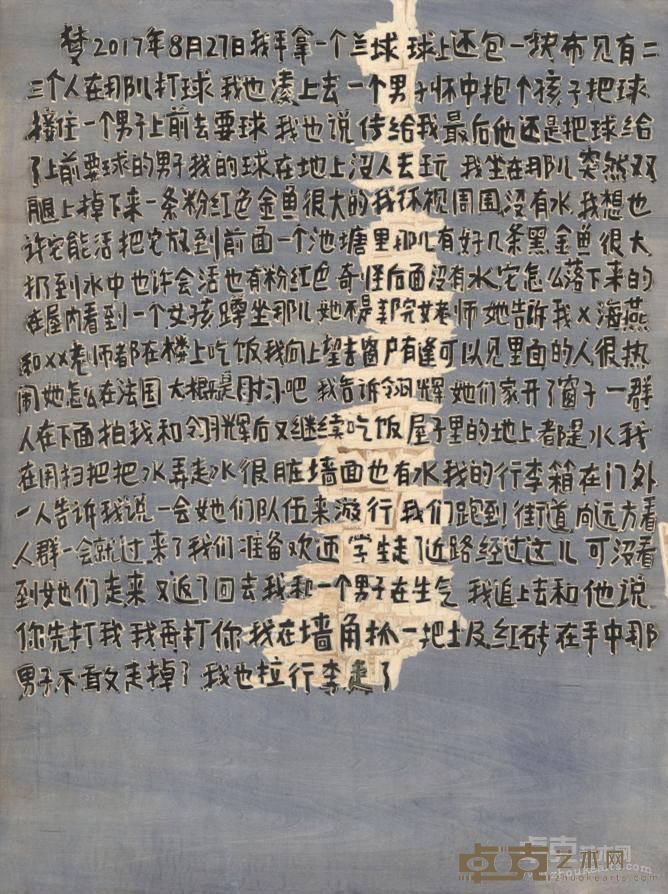 梦2017年8月27日我手拿一个兰球球上还包一块布见有二
三个人在那儿打球我也凑上去一个男子怀中抱个孩子把球
接住一个男子上前去要球我也说传给我最后他还是把球给
了上前要球的男子我的球在地上没人去玩我坐在那儿突然双
腿上掉下来一条粉红色金鱼很大的我环视周围没有水我想也
许它能活把它放到前面一个池塘里那儿有好几条黑金鱼很大
扔到水中也许会活也有粉红色奇怪后面没有水它怎么落下来的
在屋内看到一个女孩蹲坐那儿她不是美院女老师她告诉我X海燕
和XX老师都在楼上吃饭我向上望去窗户有缝可以见里面的人很热
闹她怎么在法国大概是同时习吧我告诉翎辉她们家开了窗子一群
人在下面拍我和翎辉后又继续吃饭屋子里的地上都是水我
在用扫把把水弄走水很脏墙面也有水我的行李箱在门外
一人告诉我说一会她们队伍来游行我们跑到街道向远方看
人群一会就过来了我们准备欢迎学生走了近路经过这儿可没看
到她们走来又返了回去我和一个男子在生气我追上去和他说
你先打我我再打你我在墙角抓一把土及红砖在手中那
男子不敢走掉了我也拉行李走了
卓克艺术网
zhuokearts.com